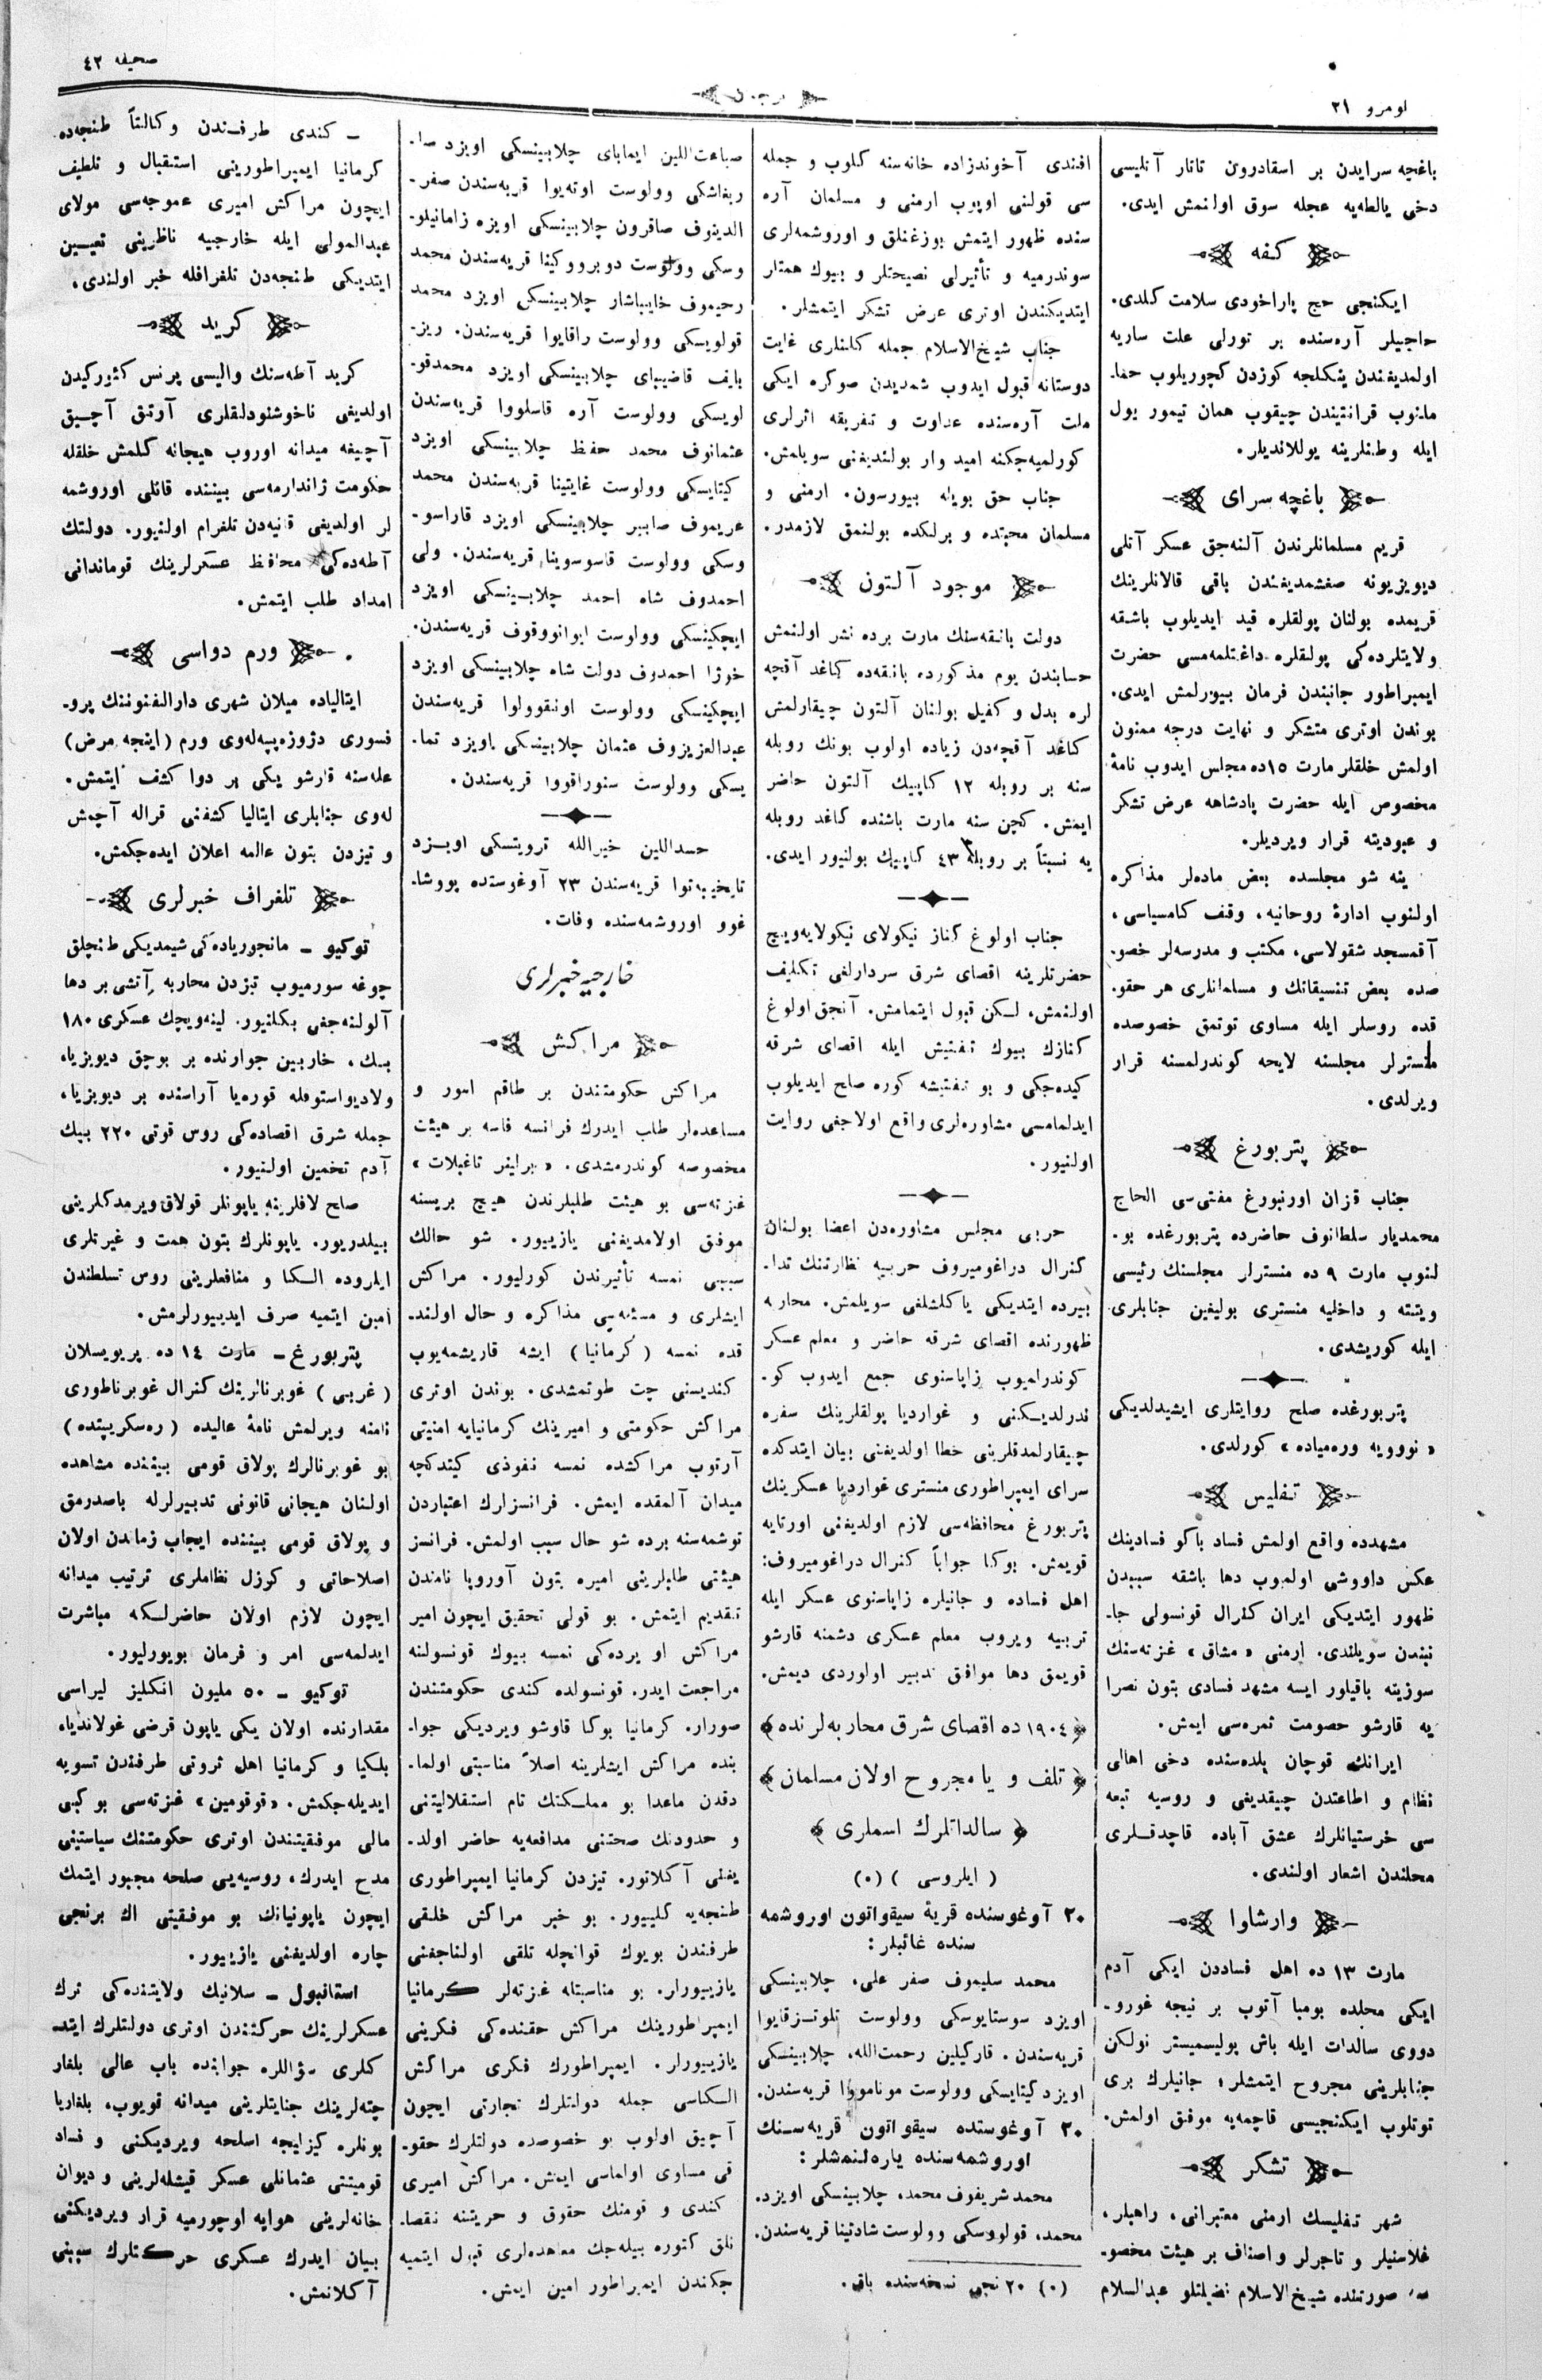 لومرو ٢١
ترجمان
صحیفه ٤٢
باغچه سرایدن بر اسقادرون تاتار آتلیسی
دخی یالطه‌یه عجله سوق اولنمش ایدی.
کفه
ایکنجی حج پاراخودی سلامت کلدی.
حاجیلر آره‌سنده بر تورلی علت ساریه
اولمدیغندن ینکلجه کوزدن کچوریلوب حفا-
ملنوب قرانتیندن چیقوب همان تیمور یول
ایله وطنلرینه یوللاندیلر.
باغچه سرای
قریم مسلمانلرندن آلنه‌جق عسکر آتلی
دیویزیونه صغشمدیغندن باقی قالانلرینك
قریمده بولنان پولقلره قید ایدیلوب باشقه
ولایتلرده‌کی پولقلره داغتلمه‌مسی حضرت
ایمپراطور جانبندن فرمان بیورلمش ایدی.
بوندن اوتری متشکر و نهایت درجه ممنون
اولمش خلقلر مارت ١٥ده مجلس ایدوب نامهٔ
مخصوص ایله حضرت پادشاهه عرض تشکر
و عبودیته قرار ویردیلر.
ینه شو مجلسده بعض ماده‌لر مذاکره
اولنوب ادارهٔ روحانیه، وقف کامسیاسی،
آقمسجد شقولاسی، مکتب و مدرسه‌لر خصو-
صده بعض تنسیقاتك و مسلمانلری هر حقو-
قده روسلر ایله مساوی توتمق خصوصده
منسترلر مجلسنه لایحه کوندرلمسنه قرار
ویرلدی.
پتربورغ
جناب قزان اورنبورغ مفتی‌سی الحاج
محمدیار سلطانوف حاضرده پتربورغده بو-
لنوب مارت ٩ ده منسترلر مجلسنك رئیسی
ویتته و داخلیه منستری بولیغین جنابلری
ایله کوریشدی.
پتربورغده صلح روایتلری ایشیدلدیکی
« نوویه وره‌میاده » کورلدی.
تفلیس
مشهدده واقع اولمش فساد باکو فسادینك
عکس داووشی اولمیوب دها باشقه سببدن
ظهور ایتدیکی ایران کنرال قونسولی جا-
نبندن سویلندی. ارمنی « مشاق » غزته‌سنك
سوزینه باقیلور ایسه مشهد فسادی بتون نصرا
یه قارشو خصومت ثمره‌سی ایمش.
ایرانك قوچان بلده‌سنده دخی اهالی
نظام و اطاعتدن چیقدیغی و روسیه تبعه
سی خرستیانلرك عشق آباده قاچدقلری
محلندن اشعار اولندی.
وارشاوا
مارت ١٣ ده اهل فساددن ایکی آدم
ایکی محلده بومبا آتوب بر نیچه غورو-
دووی سالدات ایله باش پولیسمیستر نولکن
جنابلرینی مجروح ایتمشلر؛ جانیلرك بری
توتلوب ایکنجیسی قاچمه‌یه موفق اولمش.
تشکر
شهر تفلیسك ارمنی معتبرانی، راهبلر،
غلاسنیلر و تاجرلر و اصناف بر هیئت مخصو-
صه صورتنده شیخ‌الاسلام فضیلتلو عبدالسلام
افندی آخوندزاده خانه‌سنه کلوب و جمله
سی قولنی اوپوب ارمنی و مسلمان آره
سنده ظهور ایتمش بوزغنلق و اوروشمه‌لری
سوندرمیه و تأثیرلی نصیحتلر و بیوك همتلر
ایتدیکندن اوتری عرض تشکر ایتمشلر.
جناب شیخ‌الاسلام جمله کلنلری غایت
دوستانه قبول ایدوب شمدیدن صوکره ایکی
ملت آره‌سنده عداوت و تفریقه اثرلری
کورلمیه‌جکنه امید وار بولندیغنی سویلمش.
جناب حق بویله بیورسون. ارمنی و
مسلمان محبتده و برلکده بولنمق لازمدر.
موجود آلتون
دولت بانقه‌سنك مارت برده نشر اولنمش
حسابندن یوم مذکورده بانقه‌ده کاغد آقچه
لره بدل و کفیل بولنان آلتون چیقارلمش
کاغد آقچه‌دن زیاده اولوب بونك روبله
سنه بر روبله ١٢ کاپیك آلتون حاضر
ایمش. کچن سنه مارت باشنده کاغد روبله
یه نسبتاً بر روبله ٤٣ کاپیك بولنیور ایدی.
جناب اولوغ کناز نیکولای نیکولایه‌ویچ
حضرتلرینه اقصای شرق سردارلغی تکلیف
اولنمش، لکن قبول ایتمامش. آنجق اولوغ
کنازك بیوك تفتیش ایله اقصای شرقه
کیده‌جکی و بو تفتیشه کوره صلح ایدیلوب
ایدلمامسی مشاوره‌لری واقع اولاجغی روایت
اولنیور.
حربی مجلس مشاوره‌دن اعضا بولنان
کنرال دراغومیروف حربیه نظارتنك تدا-
بیرده ایتدیکی یاکلشلغی سویلمش. محاربه
ظهورنده اقصای شرقه حاضر و معلم عسکر
کوندرلمیوب زاپاسنوی جمع ایدوب کو-
ندرلدیکنی و غواردیا پولقلرینك سفره
چیقارلمدقلرینی خطا اولدیغنی بیان ایتدکده
سرای ایمپراطوری منستری غواردیا عسکرینك
پتربورغ محافظه‌سی لازم اولدیغنی اورتایه
قویمش. بوکا جواباً کنرال دراغومیروف:
اهل فساده و جانیلره زاپاسنوی عسکر ایله
تربیه ویروب معلم عسکری دشمنه قارشو
قویمق دها موافق تدبیر اولوردی دیمش.
﴿ ١٩٠٤ ده اقصای شرق محاربه‌لرنده ﴾
﴿ تلف و یا مجروح اولان مسلمان ﴾
﴿ سالداتلرك اسملری ﴾
( ایلروسی ) (٠)
٢٠ آوغوستده قریهٔ سیقواتون اوروشمه
سنده غائبلر:
محمد سلیموف صفر علی، چلابینسکی
اویزد سوستایوسکی وولوست تلوتزقایوا
قریه‌سندن. قارکیلین رحمت‌الله، چلابینسکی
اویزد کیتایسکی وولوست موناموا قریه‌سندن.
٢٠ آوغوستده سیقواتون قریه‌سنك
اوروشمه‌سنده یاره‌لنمشلر:
محمد شریفوف محمد، چلابینسکی اویزد.
محمد، قولوسکی وولوست شادتینا قریه‌سندن.
(٠) ٢٠ نجی نسخه‌سنده باق.
صباعت‌اللین ایمابای چلابینسکی اویزد صا-
ریغاشکی وولوست اوته‌یوا قریه‌سندن صفر-
الدینوف صاقرون چلابینسکی اویزه زامانیلو-
وسکی وولوست دوبرووکیفا قریه‌سندن محمد
رحیموف خایباشار چلابینسکی اویزد محمد
قولویسکی وولوست راقایوا قریه‌سندن. ریز-
بایف قاضیبای چلابینسکی اویزد محمدقو-
لویسکی وولوست آره قاسلووا قریه‌سندن
عثمانوف محمد حفظ چلابینسکی اویزد
کیتایسکی وولوست غایتینا قریه‌سندن محمد
عریموف صابیر چلابینسکی اویزد قاراسو-
وسکی وولوست قاسوسوینا قریه‌سندن. ولی
احمدوف شاه احمد چلابینسکی اویزد
ایچکینسکی وولوست ایوانووقوف قریه‌سندن.
خوژا احمدوف دولت شاه چلابینسکی اویزد
ایچکینسکی وولوست اونقوولوا قریه‌سندن
عبدالعزیزوف عثمان چلابینسکی اویزد تما-
یسکی وولوست سنوراقووا قریه‌سندن.
حسداللین خیرالله ترویتسکی اویزد
تایخیبه‌توا قریه‌سندن ٢٣ آوغوستده پووشا-
غوو اوروشمه‌سنده وفات.
خارجیه خبرلری
مراکش
مراکش حکومتندن بر طاقم امور و
مساعده‌لر طلب ایدرك فرانسه فاسه بر هیئت
مخصوصه کوندرمشدی. « برلینر تاغبلات »
غزته‌سی بو هیئت طلبلرندن هیچ بریسنه
موفق اولامدیغنی یازییور. شو حالك
سببی نمسه تأثیرندن کورلیور. مراکش
ایشلری و مسئله‌سی مذاکره و حال اولند-
قده نمسه ( کرمانیا ) ایشه قاریشمه‌یوب
کندیسنی چت طوتمشدی. بوندن اوتری
مراکش حکومتی و امیرینك کرمانیایه امنیتی
آرتوب مراکشده نمسه نفوذی کیتدکچه
میدان آلمقده ایمش. فرانسزلرك اعتباردن
توشمه‌سنه برده شو حال سبب اولمش. فرانسز
هیئتی طلبلرینی امیره بتون آوروپا نامندن
تقدیم ایتمش. بو قولی تحقیق ایچون امیر
مراکش او یرده‌کی نمسه بیوك قونسولنه
مراجعت ایدر. قونسولده کندی حکومتندن
صورار. کرمانیا بوکا قاوشو ویردیکی جوا-
بنده مراکش ایشلرینه اصلاً مناسبتی اولما-
دقدن ماعدا بو مملکتك تام استقلالیتنی
و حدودنك صحتنی مدافعه‌یه حاضر اولد-
یغنی آکلاتور. تیزدن کرمانیا ایمپراطوری
طنجه‌یه کلییور. بو خبر مراکش خلقی
طرفندن بویوك قوانچله تلقی اولناجغنی
یازییورلر. بو مناسبتله غزته‌لر کرمانیا
ایمپراطورینك مراکش حقنده‌کی فکرینی
یازییورلر. ایمپراطورك فکری مراکش
السکاسی جمله دولتلرك تجارتی ایچون
آچیق اولوب بو خصوصده دولتلرك حقو-
قی مساوی اولماسی ایمش. مراکش امیری
کندی و قومنك حقوق و حریتنه نقصا-
نلق کتوره بیله‌جك معاهده‌لری قبول ایتمیه
جکندن ایمپراطور امین ایمش.
ـ کندی طرفندن وکالتاً طنجه‌ده
کرمانیا ایمپراطورینی استقبال و تلطیف
ایچون مراکش امیری عموجه‌سی مولای
عبدالمولی ایله خارجیه ناظرینی تعیین
ایتدیکی طنجه‌دن تلغرافله خبر اولندی.
کرید
کرید آطه‌سنك والیسی پرنس کئورکیدن
اولدیغی ناخوشنودلقلری آرتق آچیق
آچیغه میدانه اوروب هیجانه کلمش خلقله
حکومت ژاندارمه‌سی بیننده قانلی اوروشمه
لر اولدیغی قانیه‌دن تلغرام اولنیور. دولتك
آطه‌ده‌کی محافظ عسکرلرینك قوماندانی
امداد طلب ایتمش.
ورم دواسی
ایتالیاده میلان شهری دارالفنوننك پرو-
فسوری دژوزه‌پپه‌له‌وی ورم ( اینجه مرض )
علتنه قارشو یکی بر دوا کشف ایتمش.
له‌وی جنابلری ایتالیا کشفنی قراله آچمش
و تیزدن بتون عالمه اعلان ایده‌جکمش.
تلغراف خبرلری
توکیو ـ مانجوریاده‌کی شیمدیکی طنچلق
چوغه سورمیوب تیزدن محاربه آتشی بر دها
آلولنه‌جغی بکلنیور. لینه‌ویچك عسکری ١٨٠
بیك، خاربین جوارنده بر بوچق دیویزیا،
ولادیواستوقله قوره‌یا آراسنده بر دیویزیا،
جمله شرق اقصاده‌کی روس قوتی ٢٢٠ بیك
آدم تخمین اولنیور.
صلح لافلرینه یاپونلر قولاق ویرمدکلرینی
بیلدریور. یاپونلرك بتون همت و غیرتلری
ایلروده السکا و منافعلرینی روس تسلطندن
امین ایتمیه صرف ایدییورلرمش.
پتربورغ ـ مارت ١٤ ده پریویسلان
( غربی ) غوبرنالرینك کنرال غوبرناطوری
نامنه ویرلمش نامهٔ عالیده ( ره‌سکریپتده )
بو غوبرنالرك پولاق قومی بیننده مشاهده
اولنان هیجانی قانونی تدبیرلرله باصدرمق
و پولاق قومی بیننده ایجاب زماندن اولان
اصلاحاتی و کوزل نظاملری ترتیب میدانه
ایچون لازم اولان حاضرلکه مباشرت
ایدلمه‌سی امر و فرمان بویورلیور.
توکیو ـ ٥٠ ملیون انکلیز لیراسی
مقدارنده اولان یکی یاپون قرضی غولاندیا،
بلکیا و کرمانیا اهل ثروتی طرفندن تسویه
ایدیله‌جکمش. « قوقومین » غزته‌سی بو کبی
مالی موفقیتندن اوتری حکومتنك سیاستینی
مدح ایدرك، روسیه‌یی صلحه مجبور ایتمك
ایچون یاپونیانك بو موفقیتی اك برنجی
چاره اولدیغنی یازییور.
استانبول ـ سلانیك ولایتنده‌کی ترك
عسکرلرینك حرکتندن اوتری دولتلرك ایتد-
کلری سؤاللره جوابنده باب عالی بلغار
چته‌لرینك جنایتلرینی میدانه قویوب، بلغاریا
بونلره کیزلیجه اسلحه ویردیکنی و فساد
قومیتتی عثمانلی عسکر قیشله‌لرینی و دیوان
خانه‌لرینی هوایه اوچورمیه قرار ویردیکنی
بیان ایدرك عسکری حرکتلرك سببنی
آکلاتمش.